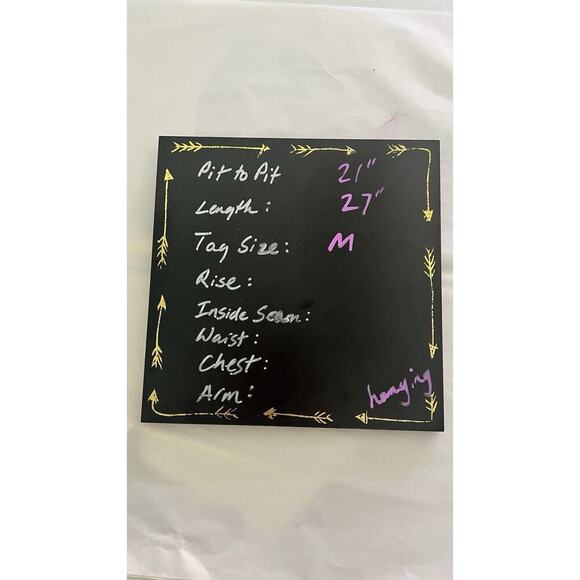 Pit to Pit 21"
Length: 27"
Tag Size: M
Rise:
Inside Seam:
Waist:
Chest:
Arm:
hanging